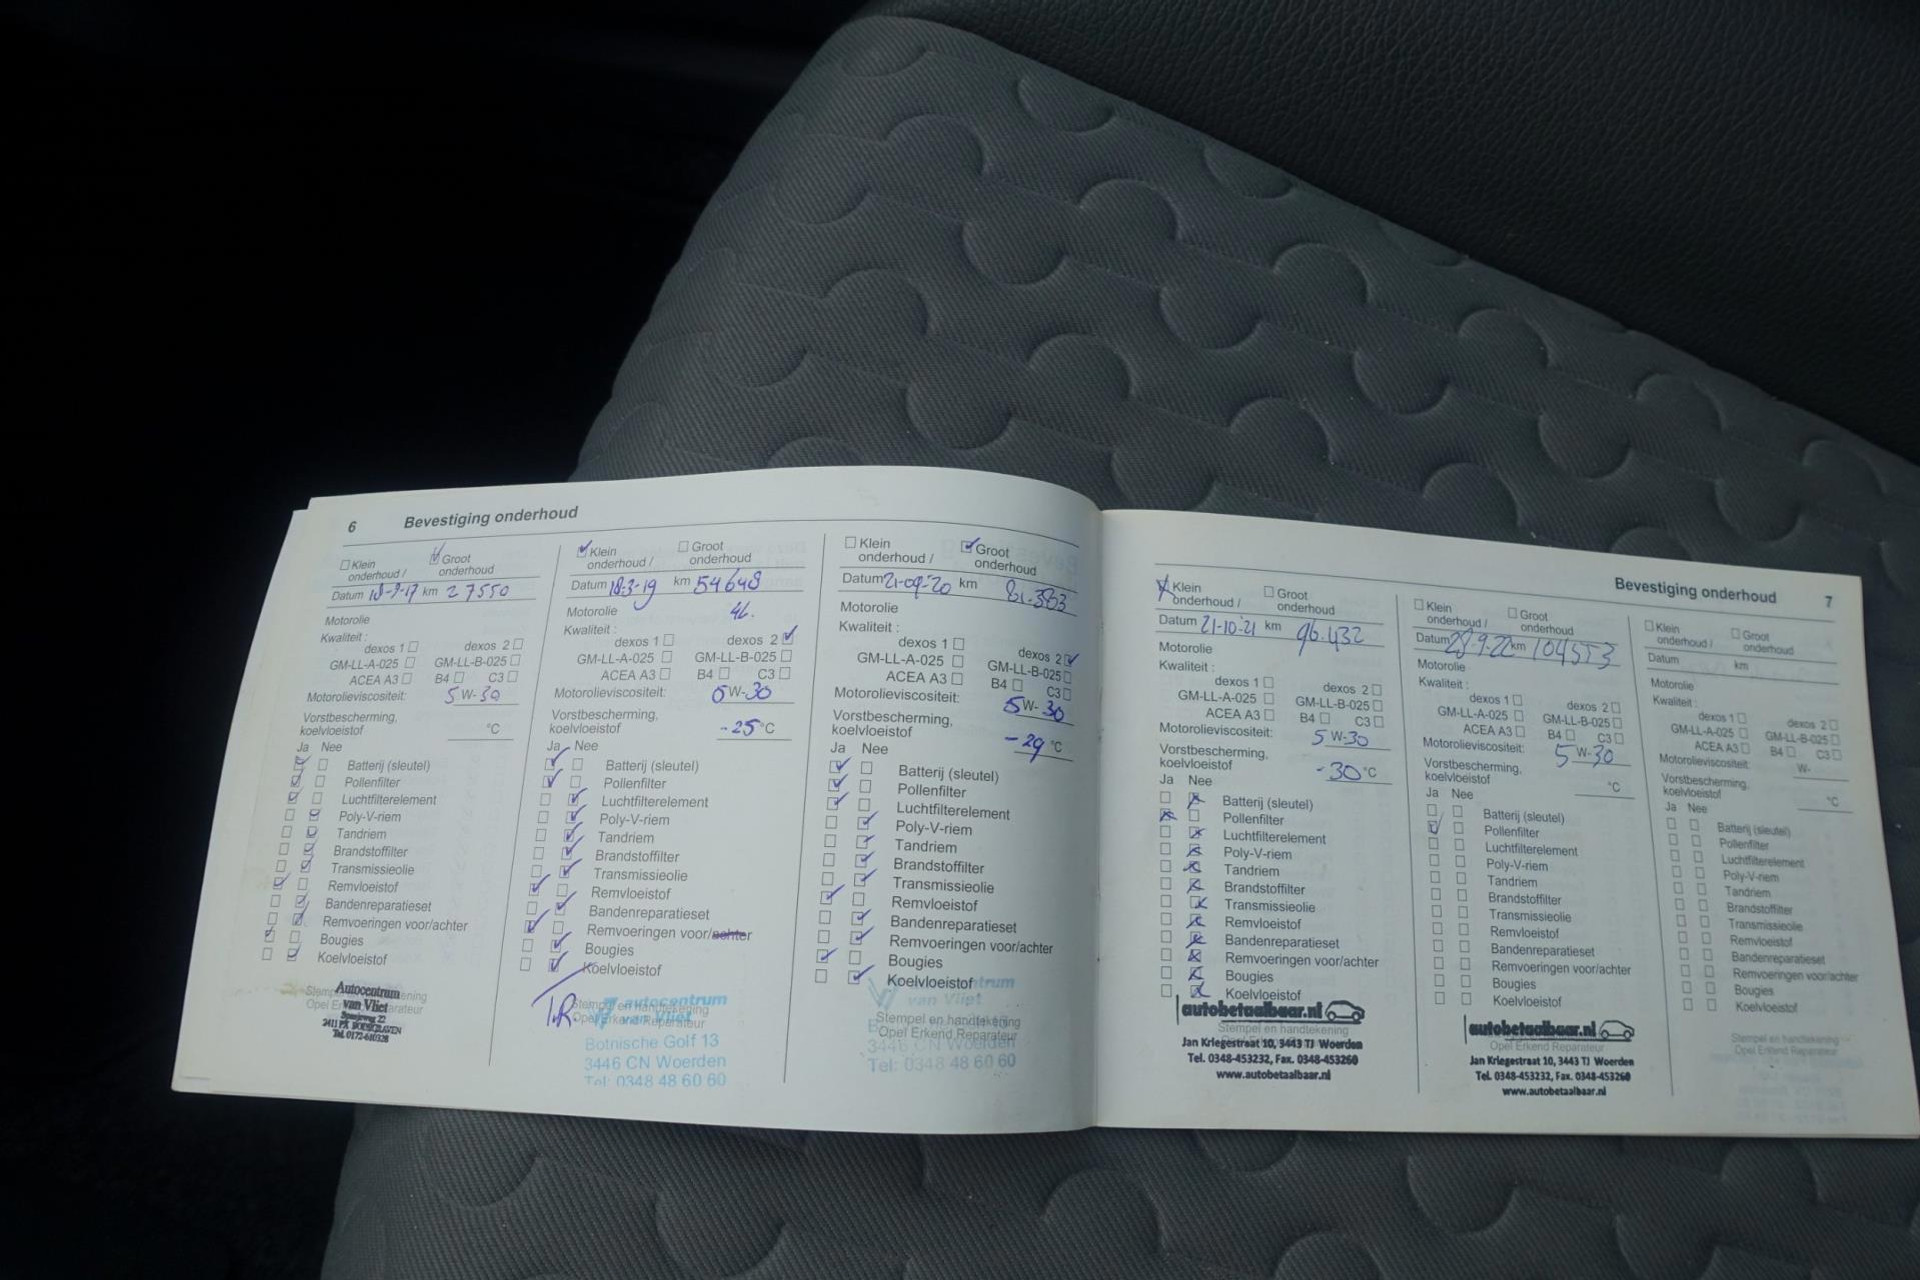 6 Bevestiging onderhoud
Klein onderhoud / Groot onderhoud
Datum 18-9-17 km 27550
Motorolie
Kwaliteit :
dexos 1 dexos 2
GM-LL-A-025 GM-LL-B-025
ACEA A3 B4 C3
Motorolieviscositeit: 5 W-30
Vorstbescherming,
koelvloeistof °C
Ja Nee
Batterij (sleutel)
Pollenfilter
Luchtfilterelement
Poly-V-riem
Tandriem
Brandstoffilter
Transmissieolie
Remvloeistof
Bandenreparatieset
Remvoeringen voor/achter
Bougies
Koelvloeistof
Stempel en handtekening
Opel Erkend Reparateur
Autocentrum
van Vliet
Spanjeweg 22
Tel. 0172-610328
Klein onderhoud / Groot onderhoud
Datum 18-3-19 km 54648
Motorolie 4L.
Kwaliteit :
dexos 1 dexos 2
GM-LL-A-025 GM-LL-B-025
ACEA A3 B4 C3
Motorolieviscositeit: 5W-30
Vorstbescherming,
koelvloeistof -25 °C
Ja Nee
Batterij (sleutel)
Pollenfilter
Luchtfilterelement
Poly-V-riem
Tandriem
Brandstoffilter
Transmissieolie
Remvloeistof
Bandenreparatieset
Remvoeringen voor/achter
Bougies
Koelvloeistof
Stempel en handtekening
Opel Erkend Reparateur
autocentrum
van Vliet
Botnische Golf 13
3446 CN Woerden
Tel: 0348 48 60 60
Klein onderhoud / Groot onderhoud
Datum 21-09-20 km 81.383
Motorolie
Kwaliteit :
dexos 1 dexos 2
GM-LL-A-025 GM-LL-B-025
ACEA A3 B4 C3
Motorolieviscositeit: 5W-30
Vorstbescherming,
koelvloeistof -29 °C
Ja Nee
Batterij (sleutel)
Pollenfilter
Luchtfilterelement
Poly-V-riem
Tandriem
Brandstoffilter
Transmissieolie
Remvloeistof
Bandenreparatieset
Remvoeringen voor/achter
Bougies
Koelvloeistof
van Vliet
Stempel en handtekening
Opel Erkend Reparateur
3446 CN Woerden
Tel: 0348 48 60 60
Bevestiging onderhoud 7
Klein onderhoud / Groot onderhoud
Datum 21-10-21 km 96.432
Motorolie
Kwaliteit :
dexos 1 dexos 2
GM-LL-A-025 GM-LL-B-025
ACEA A3 B4 C3
Motorolieviscositeit: 5 W-30
Vorstbescherming,
koelvloeistof -30 °C
Ja Nee
Batterij (sleutel)
Pollenfilter
Luchtfilterelement
Poly-V-riem
Tandriem
Brandstoffilter
Transmissieolie
Remvloeistof
Bandenreparatieset
Remvoeringen voor/achter
Bougies
Koelvloeistof
autobetaalbaar.nl
Stempel en handtekening
Jan Kriegestraat 10, 3443 TJ Woerden
Tel. 0348-453232, Fax. 0348-453260
www.autobetaalbaar.nl
Klein onderhoud / Groot onderhoud
Datum 28-9-22 km 104553
Motorolie
Kwaliteit :
dexos 1 dexos 2
GM-LL-A-025 GM-LL-B-025
ACEA A3 B4 C3
Motorolieviscositeit: 5 W-30
Vorstbescherming,
koelvloeistof °C
Ja Nee
Batterij (sleutel)
Pollenfilter
Luchtfilterelement
Poly-V-riem
Tandriem
Brandstoffilter
Transmissieolie
Remvloeistof
Bandenreparatieset
Remvoeringen voor/achter
Bougies
Koelvloeistof
autobetaalbaar.nl
Opel Erkend Reparateur
Jan Kriegestraat 10, 3443 TJ Woerden
Tel. 0348-453232, Fax. 0348-453260
www.autobetaalbaar.nl
Klein onderhoud / Groot onderhoud
Datum km
Motorolie
Kwaliteit :
dexos 1 dexos 2
GM-LL-A-025 GM-LL-B-025
ACEA A3 B4 C3
Motorolieviscositeit: W-
Vorstbescherming,
koelvloeistof °C
Ja Nee
Batterij (sleutel)
Pollenfilter
Luchtfilterelement
Poly-V-riem
Tandriem
Brandstoffilter
Transmissieolie
Remvloeistof
Bandenreparatieset
Remvoeringen voor/achter
Bougies
Koelvloeistof
Stempel en handtekening
Opel Erkend Reparateur